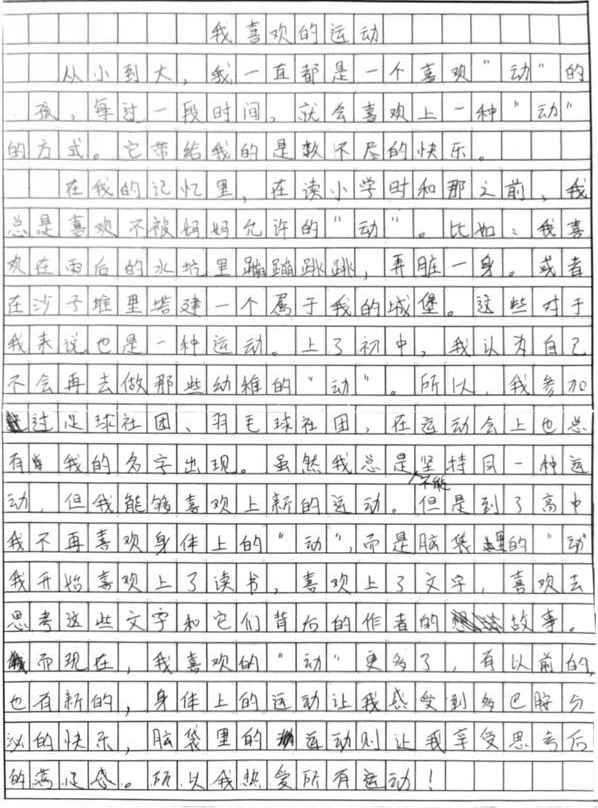 我喜欢的运动
从小到大，我一直都是一个喜欢“动”的
孩，每过一段时间，就会喜欢上一种“动”
的方式。它带给我的是数不尽的快乐。
在我的记忆里，在读小学时和那之前，我
总是喜欢不被妈妈允许的“动”。比如：我喜
欢在雨后的水坑里蹦蹦跳跳，弄脏一身。或者
在沙子堆里搭建一个属于我的城堡。这些对于
我来说也是一种运动。上了初中，我认为自己
不会再去做那些幼稚的“动”。所以，我参加
过足球社团、羽毛球社团，在运动会上也总
有我的名字出现。虽然我总是不能坚持同一种运
动，但我能够喜欢上新的运动。但是到了高中
我不再喜欢身体上的“动”，而是脑袋里的“动”
我开始喜欢上了读书，喜欢上了文字，喜欢去
思考这些文字和它们背后的作者的故事。
而现在，我喜欢的“动”更多了，有以前的，
也有新的，身体上的运动让我感受到多巴胺分
泌的快乐，脑袋里的运动则让我享受思考后
的满足感。所以我热爱所有运动！